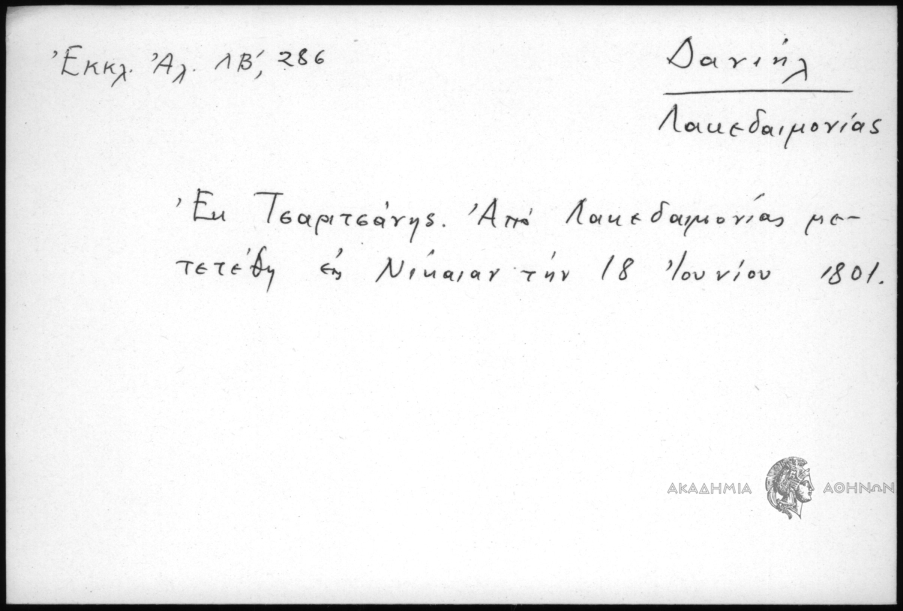 Ἐκκλ. Ἀλ. ΛΒ΄, 286
Δανιήλ
Λακεδαιμονίας
Ἐκ Τσαριτσάνης. Ἀπὸ Λακεδαιμονίας με-
τετέθη εἰς Νίκαιαν τὴν 18 Ἰουνίου 1801.
ΑΚΑΔΗΜΙΑ ΑΘΗΝΩΝ